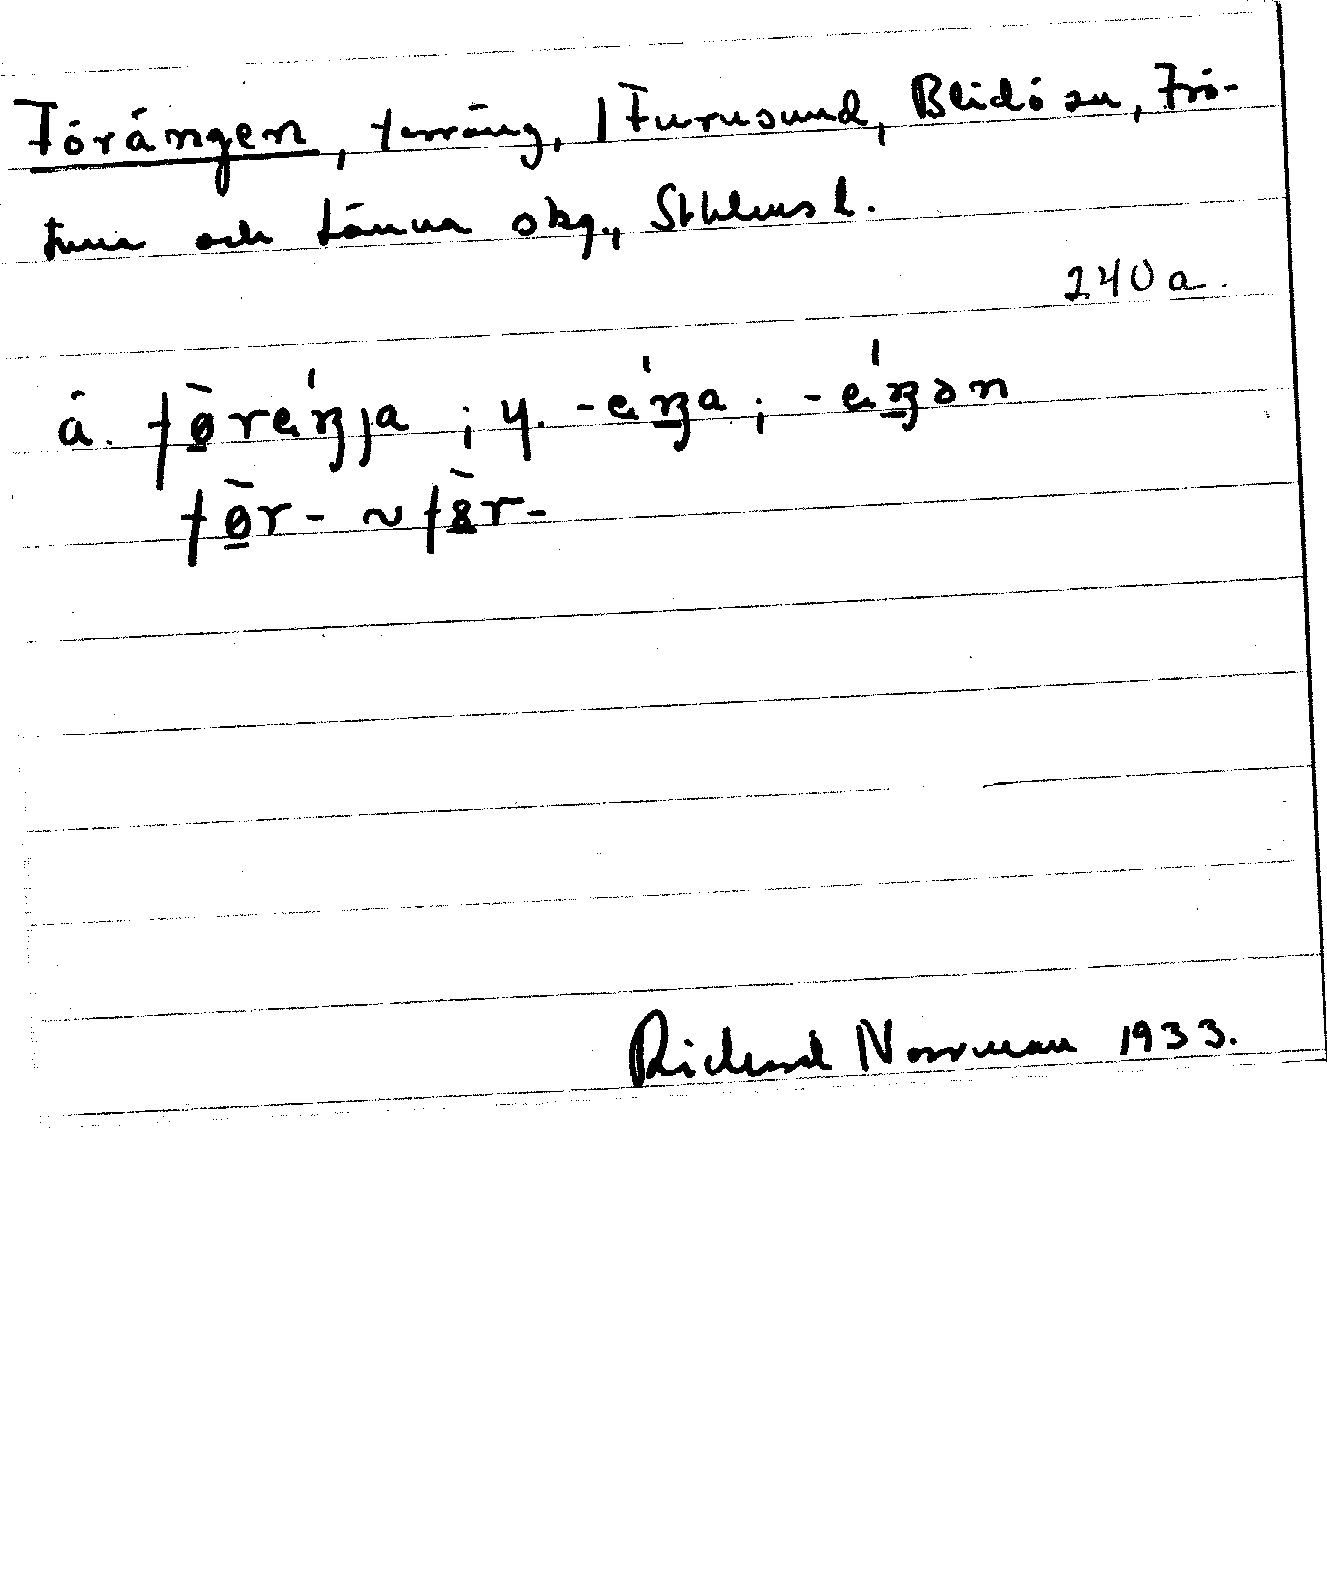 Förängen, terräng, 1 Furusund, Blidö sn, Frö-
tuna och Länna skg., Sthlms l.
240 a.
ä. fø̀reŋ́ja ; y. -eŋ́a ; -eŋ́ən
fø̀r- ~ f
Richard Norrman 1933.